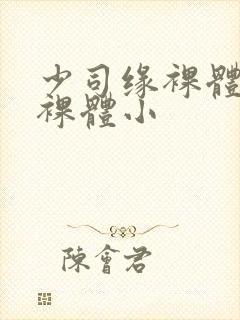 少司缘裸體
裸體小
陳會君